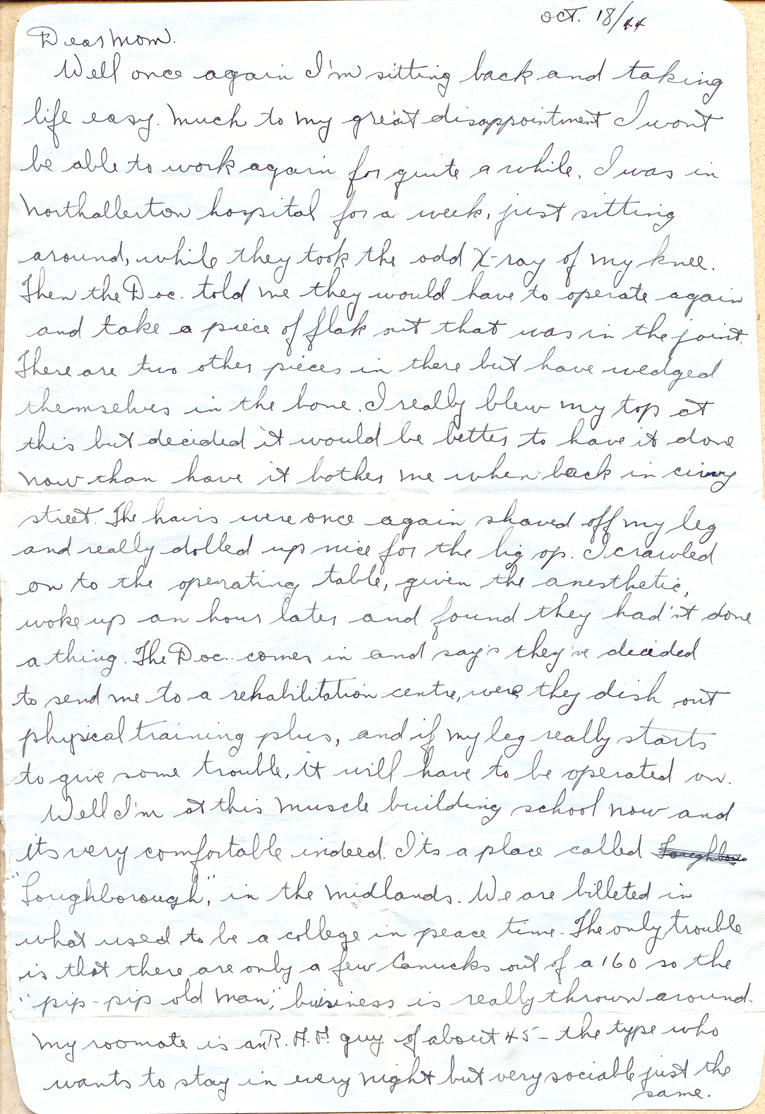 Oct. 18/44
Dear Mom.
Well once again I'm sitting back and taking
life easy. Much to my great disappointment I wont
be able to work again for quite a while. I was in
Northallerton hospital for a week, just sitting
around, while they took the odd X-ray of my knee.
Then the Doc. told me they would have to operate again
and take a piece of flak out that was in the joint.
There are two other pieces in there but have wedged
themselves in the bone. I really blew my top at
this but decided it would be better to have it done
now than have it bother me when back in civvy
street. The hairs were once again shaved off my leg
and really dolled up nice for the big op. I crawled
on to the operating table, given the anesthetic,
woke up an hour later and found they had'nt done
a thing. The Doc. comes in and say's they've decided
to send me to a rehabilitation centre, were they dish out
physical training plus, and if my leg really starts
to give some trouble, it will have to be operated on.
Well I'm at this muscle building school now and
its very comfortable indeed. It's a place called
"Loughborough", in the Midlands. We are billeted in
what used to be a college in peace time. The only trouble
is that there are only a few Canucks out of a 160 so the
"pip-pip old man", business is really thrown around.
My roomate is an R.A.F. guy of about 45 - the type who
wants to stay in every night but very sociable just the
same.